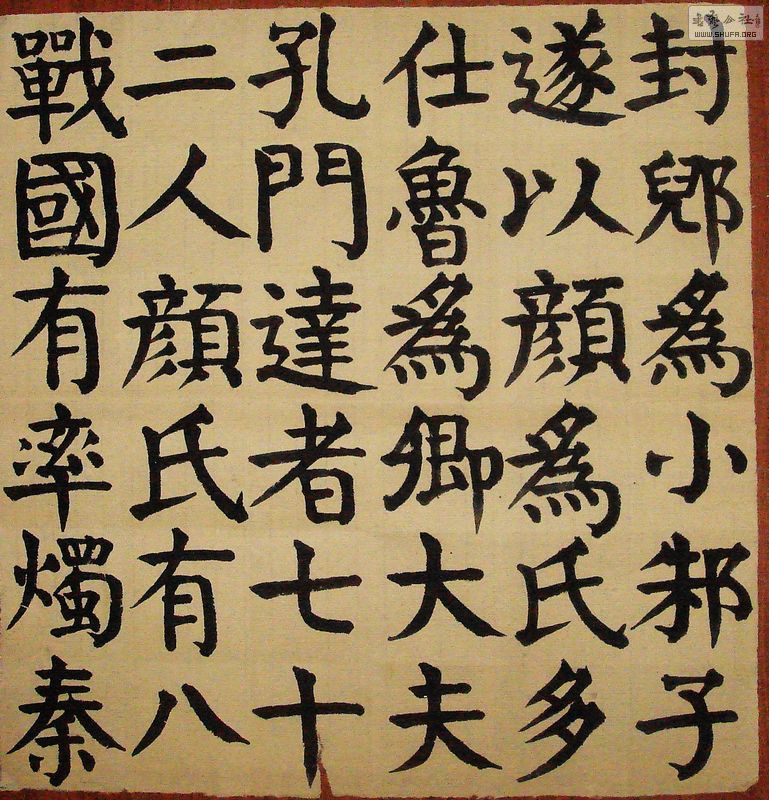 封郳爲小邾子
遂以顔爲氏多
仕魯爲卿大夫
孔門達者七十
二人顔氏有八
戰國有率燭秦
WWW.SHUFA.ORG